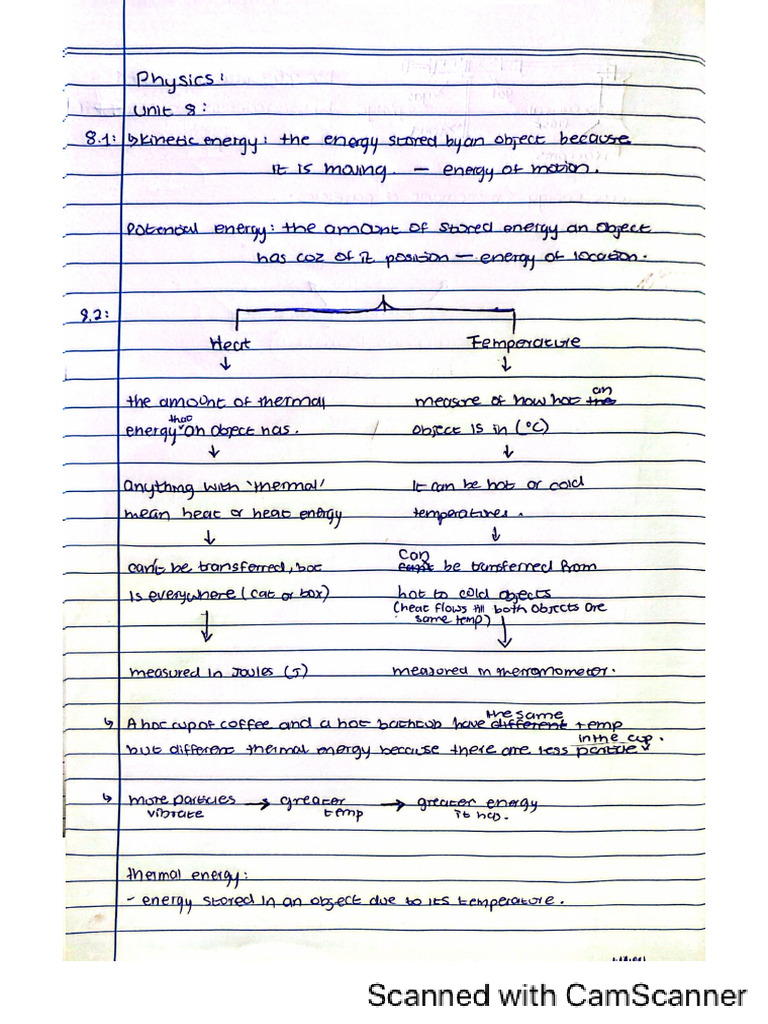 Physics:
Unit 8:
8.1: ↳ Kinetic energy: the energy stored by an object because
it is moving. — energy of motion.
Potential energy: the amount of stored energy an object
has coz of it position — energy of location.
8.2:
Heat Temperature
↓ ↓
the amount of thermal measure of how hot an the
energy that an object has. object is in (°C)
↓ ↓
anything with 'thermal' It can be hot or cold
mean heat or heat energy temperatures.
↓ ↓
can't be transferred, but can can't be transferred from
is everywhere (cat or box) hot to cold objects
(heat flows till both objects are
same temp)
↓ ↓
measured in Joules (J) measured in thermometer.
↳ A hot cup of coffee and a hot bathtub have different the same temp
but different thermal energy because there are less particle in the cup.
↳ more particles → greater → greater energy
vibrate temp it has.
thermal energy:
- energy stored in an object due to its temperature.
Scanned with CamScanner